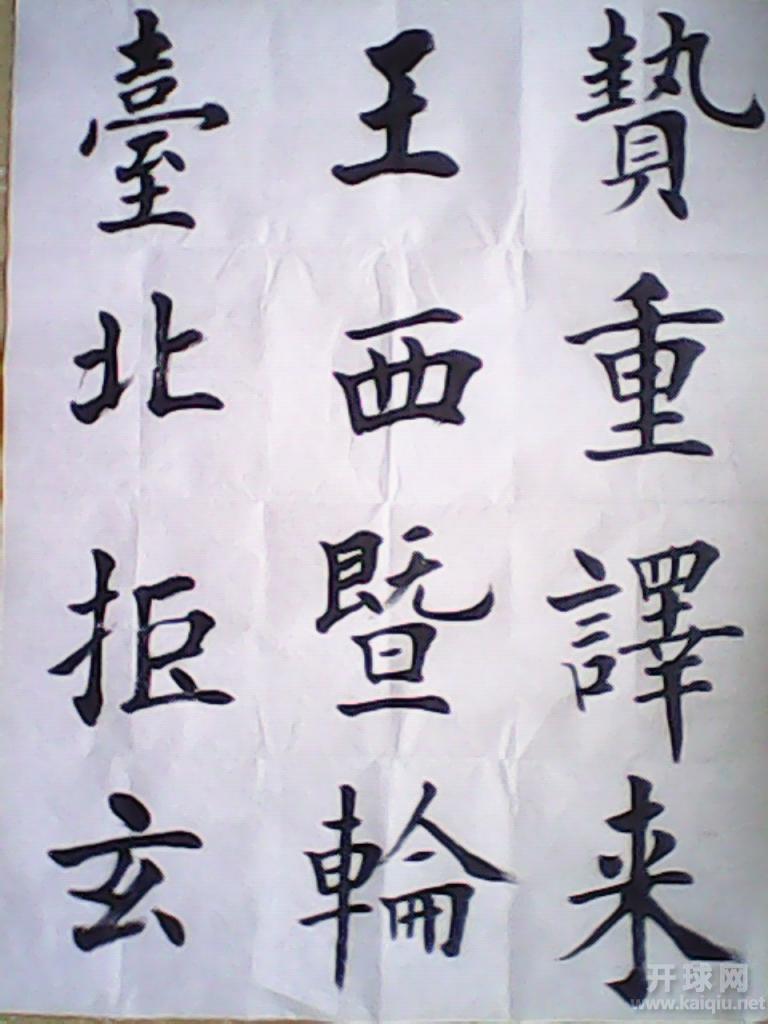 贄重譯来
王西暨輪
臺北拒玄
开球网
www.kaiqiu.net